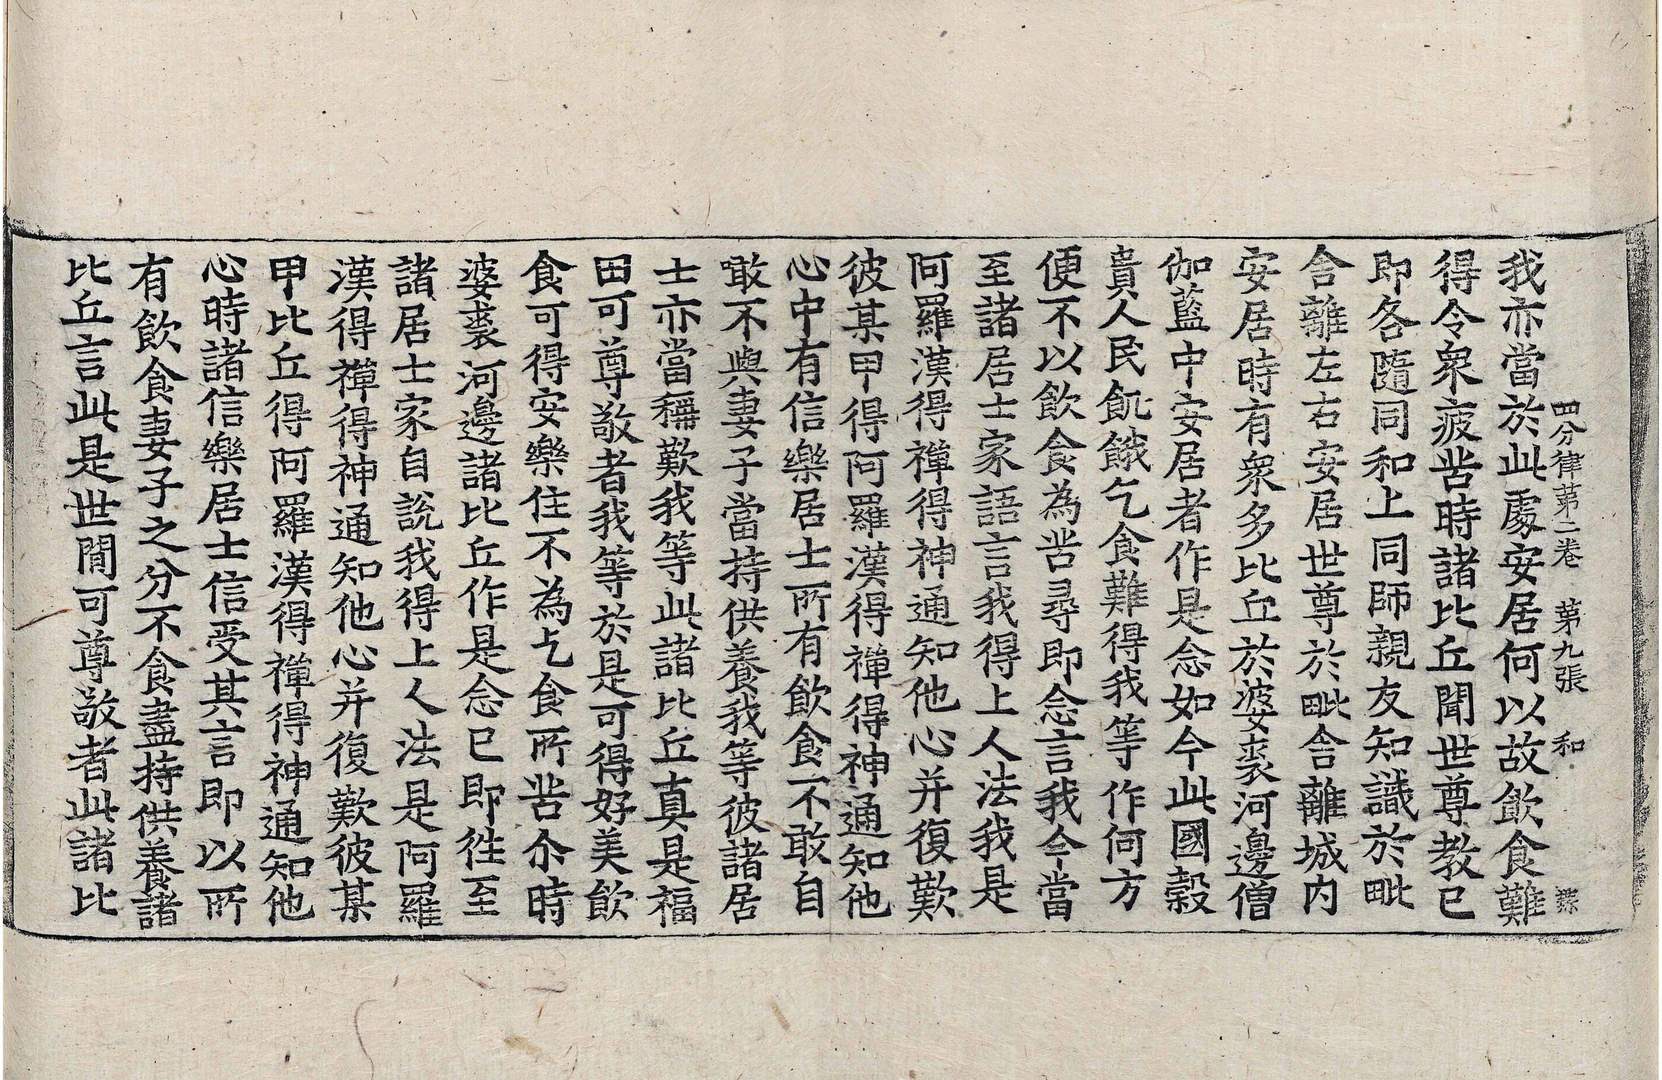 四分律第二卷　第九張　和
我亦當於此處安居何以故飲食難
得令衆疲苦時諸比丘聞世尊教已
即各隨同和上同師親友知識於毗
舍離左右安居世尊於毗舍離城內
安居時有衆多比丘於婆裘河邊僧
伽藍中安居者作是念如今此國穀
貴人民飢餓乞食難得我等作何方
便不以飲食為苦尋即念言我今當
至諸居士家語言我得上人法我是
阿羅漢得禪得神通知他心并復歎
彼某甲得阿羅漢得禪得神通知他
心中有信樂居士所有飲食不敢自
噉不與妻子當持供養我等彼諸居
士亦當稱歎我等此諸比丘真是福
田可尊敬者我等於是可得好美飲
食可得安樂住不為乞食所苦尒時
婆裘河邊諸比丘作是念已即徃至
諸居士家自說我得上人法是阿羅
漢得禪得神通知他心并復歎彼某
甲比丘得阿羅漢得禪得神通知他
心時諸信樂居士信受其言即以所
有飲食妻子之分不食盡持供養諸
比丘言此是世間可尊敬者此諸比